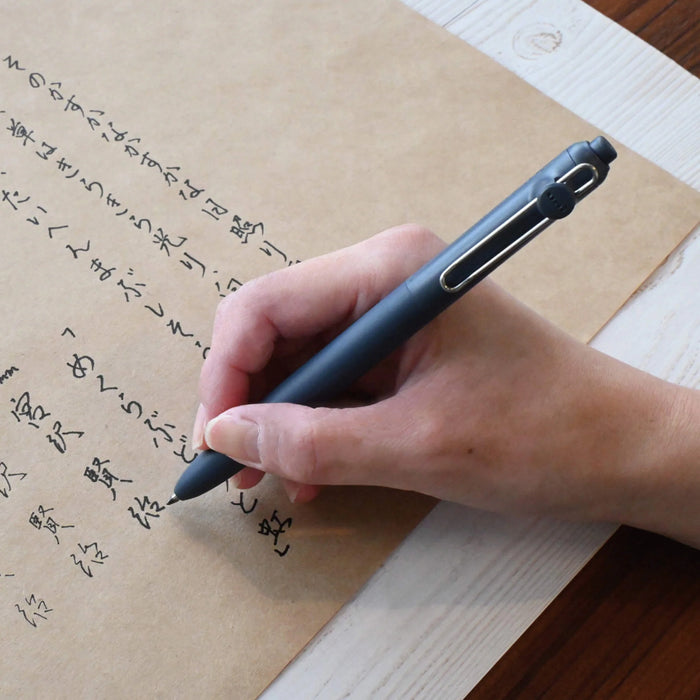 そのかすかなかすかな日照り
草はきらきら光り、向
たいへんまぶしそう
「めくらぶど と虹」
宮沢賢治
沢賢治
治